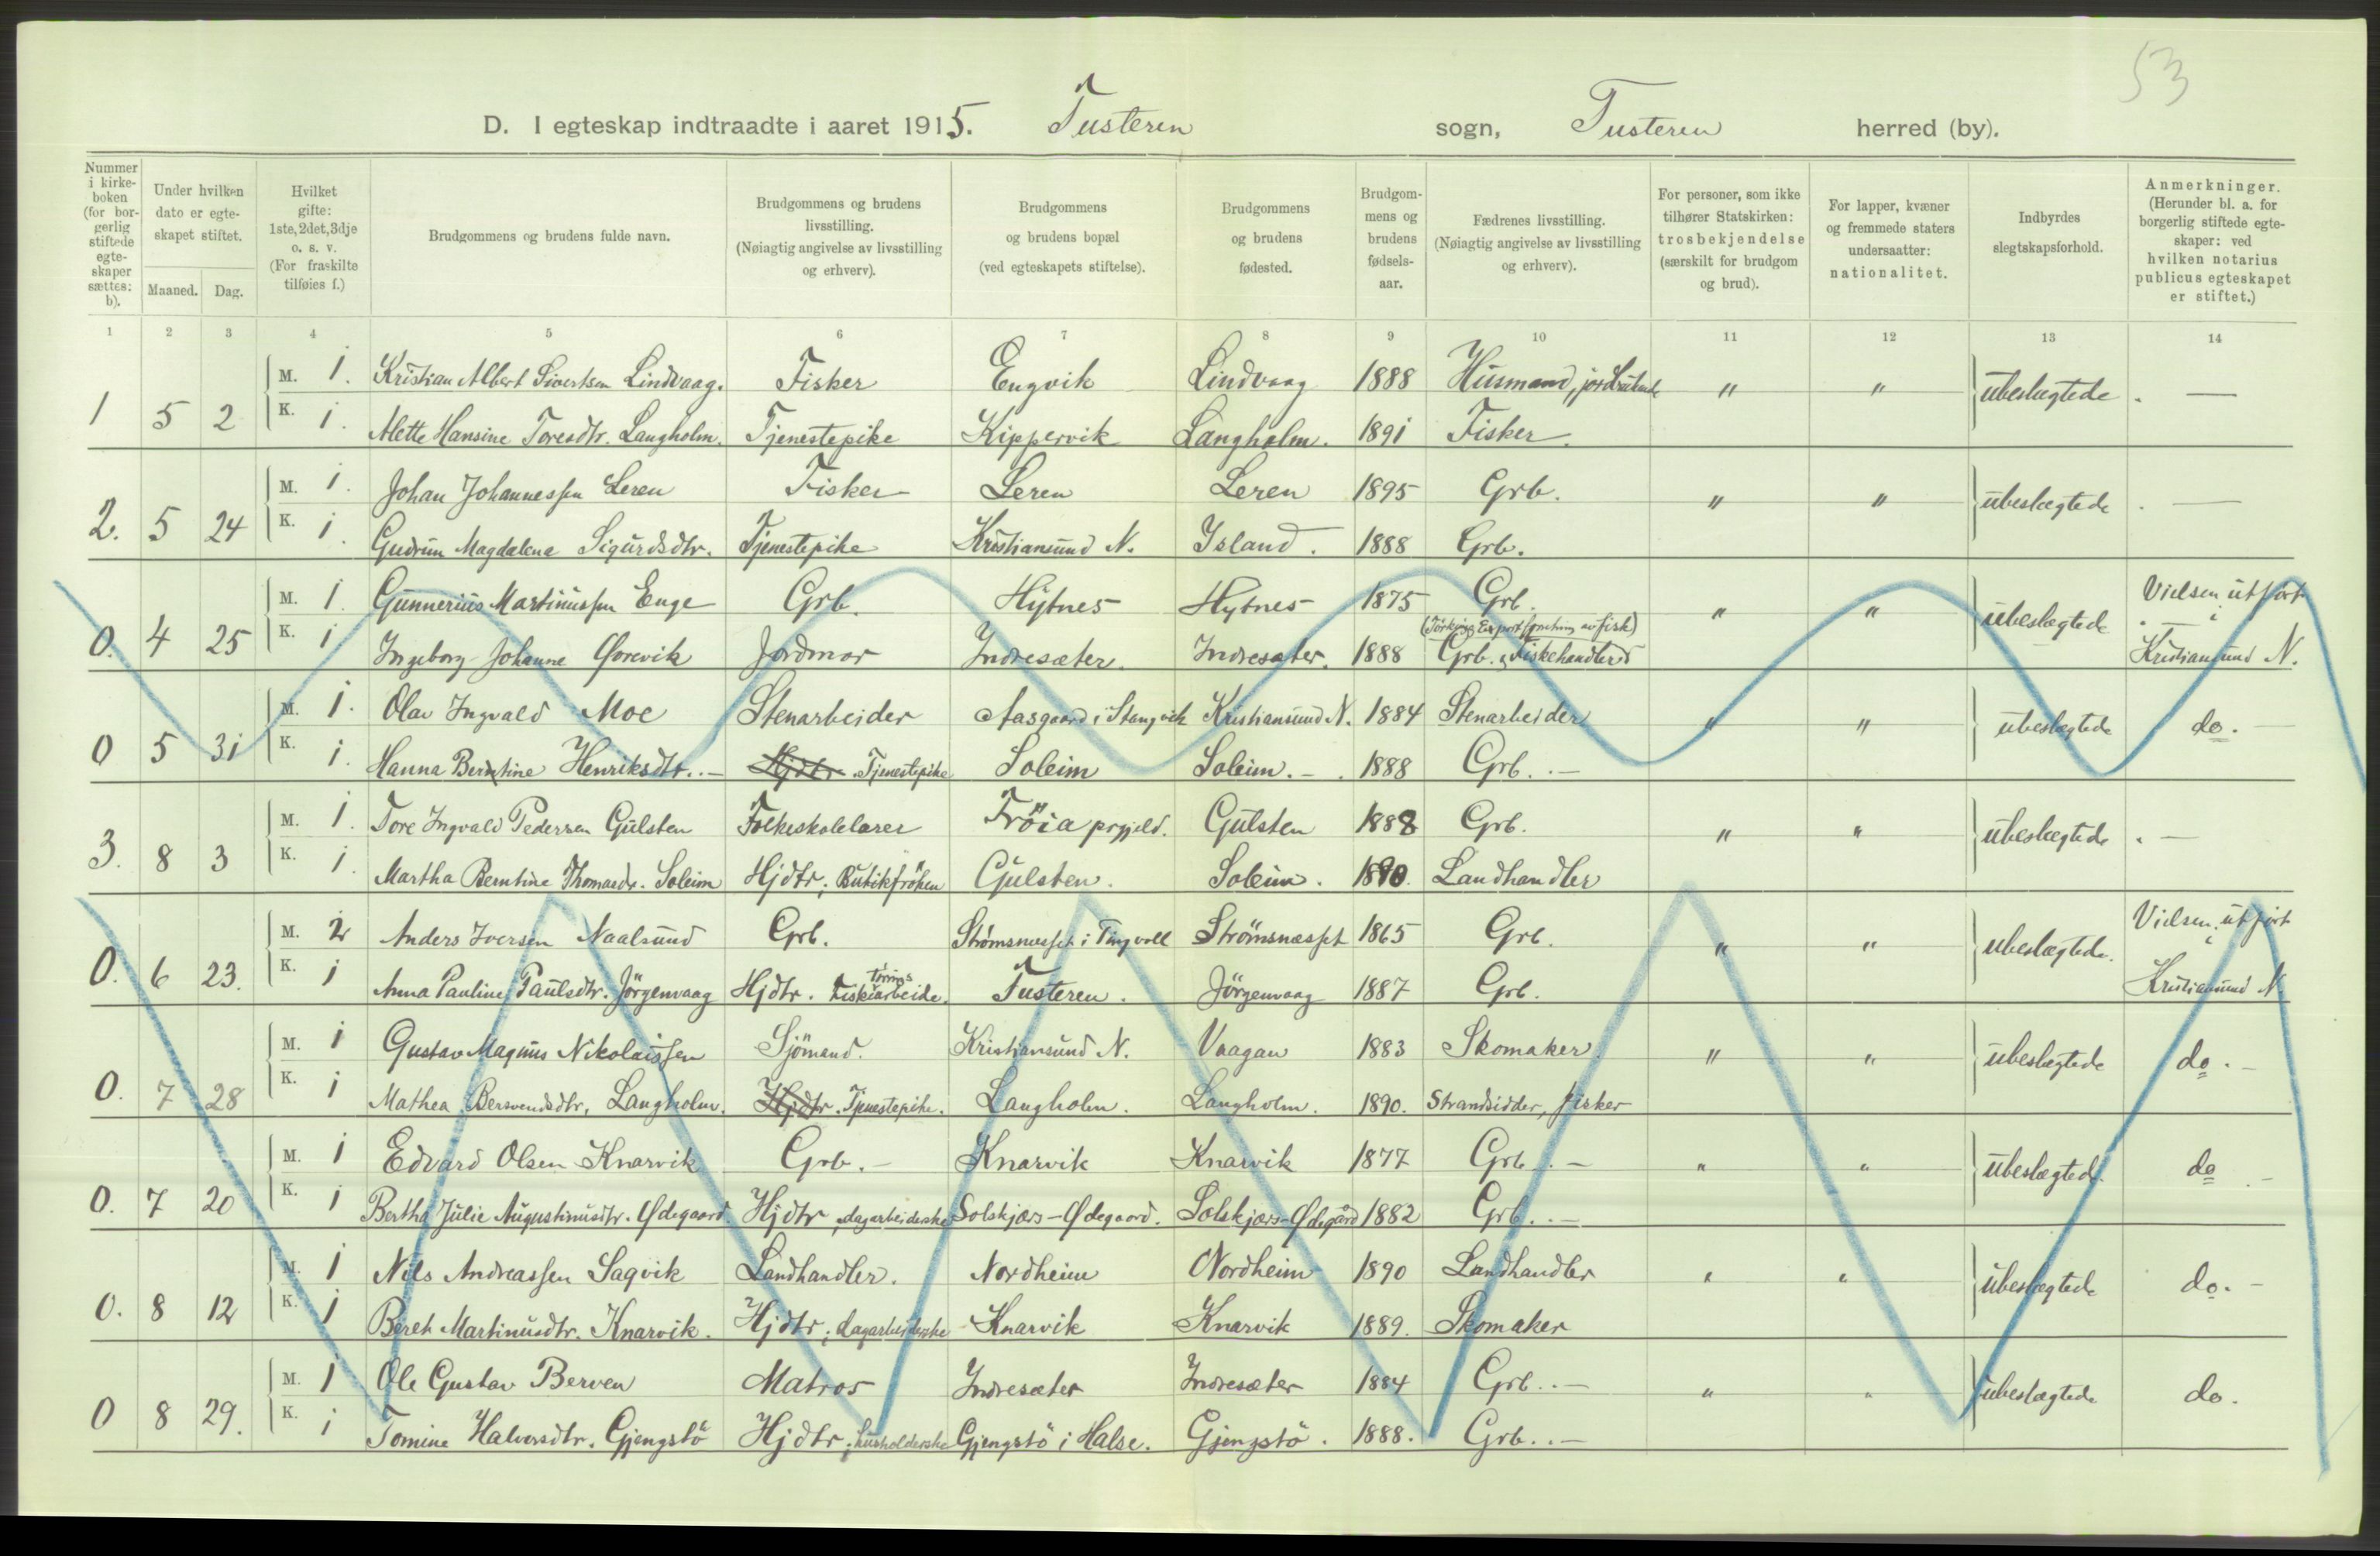 53
D. I egteskap indtraadte i aaret 1915. Tusteren sogn, Tusteren herred (by).
Nummer i kirkeboken (for borgerlig stiftede egteskaper sættes: b).
Under hvilken dato er egteskapet stiftet.
Maaned. Dag.
Hvilket gifte: 1ste, 2det, 3dje o. s. v. (For fraskilte tilføies f.)
Brudgommens og brudens fulde navn.
Brudgommens og brudens livsstilling. (Nøiagtig angivelse av livsstilling og erhverv).
Brudgommens og brudens bopæl (ved egteskapets stiftelse).
Brudgommens og brudens fødested.
Brudgommens og brudens fødselsaar.
Fædrenes livsstilling. (Nøiagtig angivelse av livsstilling og erhverv).
For personer, som ikke tilhører Statskirken: trosbekjendelse (særskilt for brudgom og brud).
For lapper, kvæner og fremmede staters undersaatter: nationalitet.
Indbyrdes slegtskapsforhold.
Anmerkninger. (Herunder bl. a. for borgerlig stiftede egteskaper: ved hvilken notarius publicus egteskapet er stiftet.)
1 2 3 4 5 6 7 8 9 10 11 12 13 14
M. 1. Kristian Albert Sivertsen Lindvaag. Fisker Engvik Lindvaag 1888 Husmand, jordbrukende
1 5 2 " " ubeslegtede . —
K. 1. Alette Hansine Toresdtr. Langholm. Tjenestepike Kippervik Langholm. 1891 Fisker.
M. 1. Johan Johannessen Leren Fisker Leren Leren 1895 Grb.
2. 5 24 " " ubeslegtede . —
K. 1. Gudrun Magdalena Sigurdsdtr. Tjenestepike Kristiansund N. Island. 1888 Grb.
M. 1. Gunnerius Martinussen Enge Grb. Hytnes Hytnes 1875 Grb. Vielsen utført
0. 4 25 " " ubeslegtede i
(Tørking Export av fisk)
K. 1 Ingeborg Johanne Gorevik Jordmor Indresæter. Indresæter. 1888 Grb. & Fiskehandler Kristiansund N.
M. 1. Olav Ingvald Moe Stenarbeider Aasgaard i Stangvik Kristiansund N. 1884 Stenarbeider
0 5 31 " " ubeslegtede do. —
K. 1. Hanna Berntine Henriksdtr. — Hjdtr. Tjenestepike Soleim Soleim. — 1888 Grb. . —
M. 1. Tore Ingvald Pedersen Gulsten Folkeskolelærer Fröia prgjeld. Gulsten 1888 Grb.
3. 8 3 " " ubeslegtede . —
K. 1. Martha Berntine Thomasdr. Soleim Hjdtr; Butikfröken Gulsten. Soleim. 1890. Landhandler
M. 2 Anders Iversen Naalsund Grb. Strömsnesset i Tingvoll Strömsnæsset 1865 Grb. Vielsen utført
0. 6 23. " " ubeslegtede. i
tørrings
K. 1 Anna Pauline Paulsdtr. Jörgenvaag Hjdtr. Fiskearbeide. Tusteren. Jörgenvaag 1887 Grb. Kristiansund N.
M. 1 Gustav Magnus Nikolaissen Sjömand. Kristiansund N. Vaagan 1883 Skomaker
0. 7 28 " " ubeslegtede do. —
K. 1 Mathea Bersvendsdtr. Langholm. Hjdtr. Tjenestepike. Langholm. Langholm. 1890. Strandsidder, fisker
M. 1 Edvard Olsen Knarvik Grb. — Knarvik Knarvik 1877 Grb. —
0. 7 20 " " ubeslegtede. do . —
K. 1 Bertha Julie Augustinusdtr. Ødegaard. Hjdtr, dagarbeiderske Solskjærs-Ødegaard. Solskjærs-Ødegård 1882 Grb. . —
M. 1 Nils Andreassen Sagvik Landhandler. Nordheim Nordheim 1890 Landhandler
0. 8 12 " " ubeslegtede do. —
K. 1 Bereh Martinusdtr. Knarvik. Hjdtr; dagarbeiderske Knarvik Knarvik 1889. Skomaker
M. 1 Ole Gustav Berven Matros Indresæter Indresæter 1884 Grb. . —
0 8 29. " " ubeslegtede do.
K. 1 Tomine Halvorsdtr. Gjengstö Hjdtr; husholderske Gjengstö i Halse. Gjengstö. 1888. Grb. . —